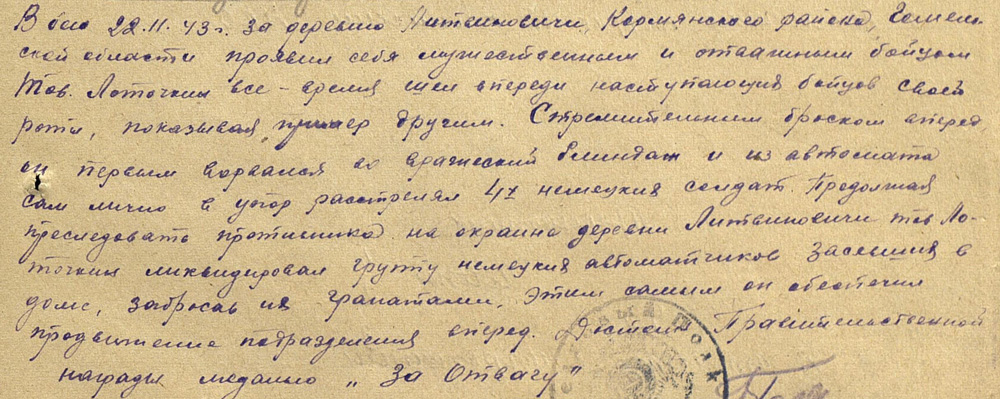 В бою 22.11.43г. за деревню Литвиновичи, Кормянского района, Гомель-
ской области проявил себя мужественным и отважным бойцом
Тов. Лоточкин все-время шел впереди наступающих бойцов своей
роты, показывая пример другим. Стремительным броском вперед
он первым ворвался во вражеский блиндаж и из автомата
сам лично в упор расстрелял 4х немецких солдат. Продолжая
преследовать противника на окраине деревни Литвиновичи тов. Ло-
точкин ликвидировал группу немецких автоматчиков засевших в
доме, забросав их гранатами. Этим самым он обеспечил
продвижение подразделения вперед. Достоен Правительственной
награды медалью „За Отвагу"